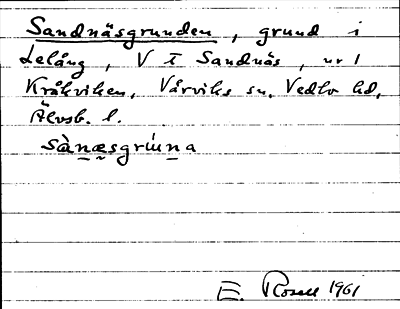 Sandnäsgrunden, grund i
Lelång, V i Sandnäs, nr 1
Kråkviken, Vårviks sn, Vedbo hd,
Älvsb. l.
sànæsgrúnna
E. Rosell 1961